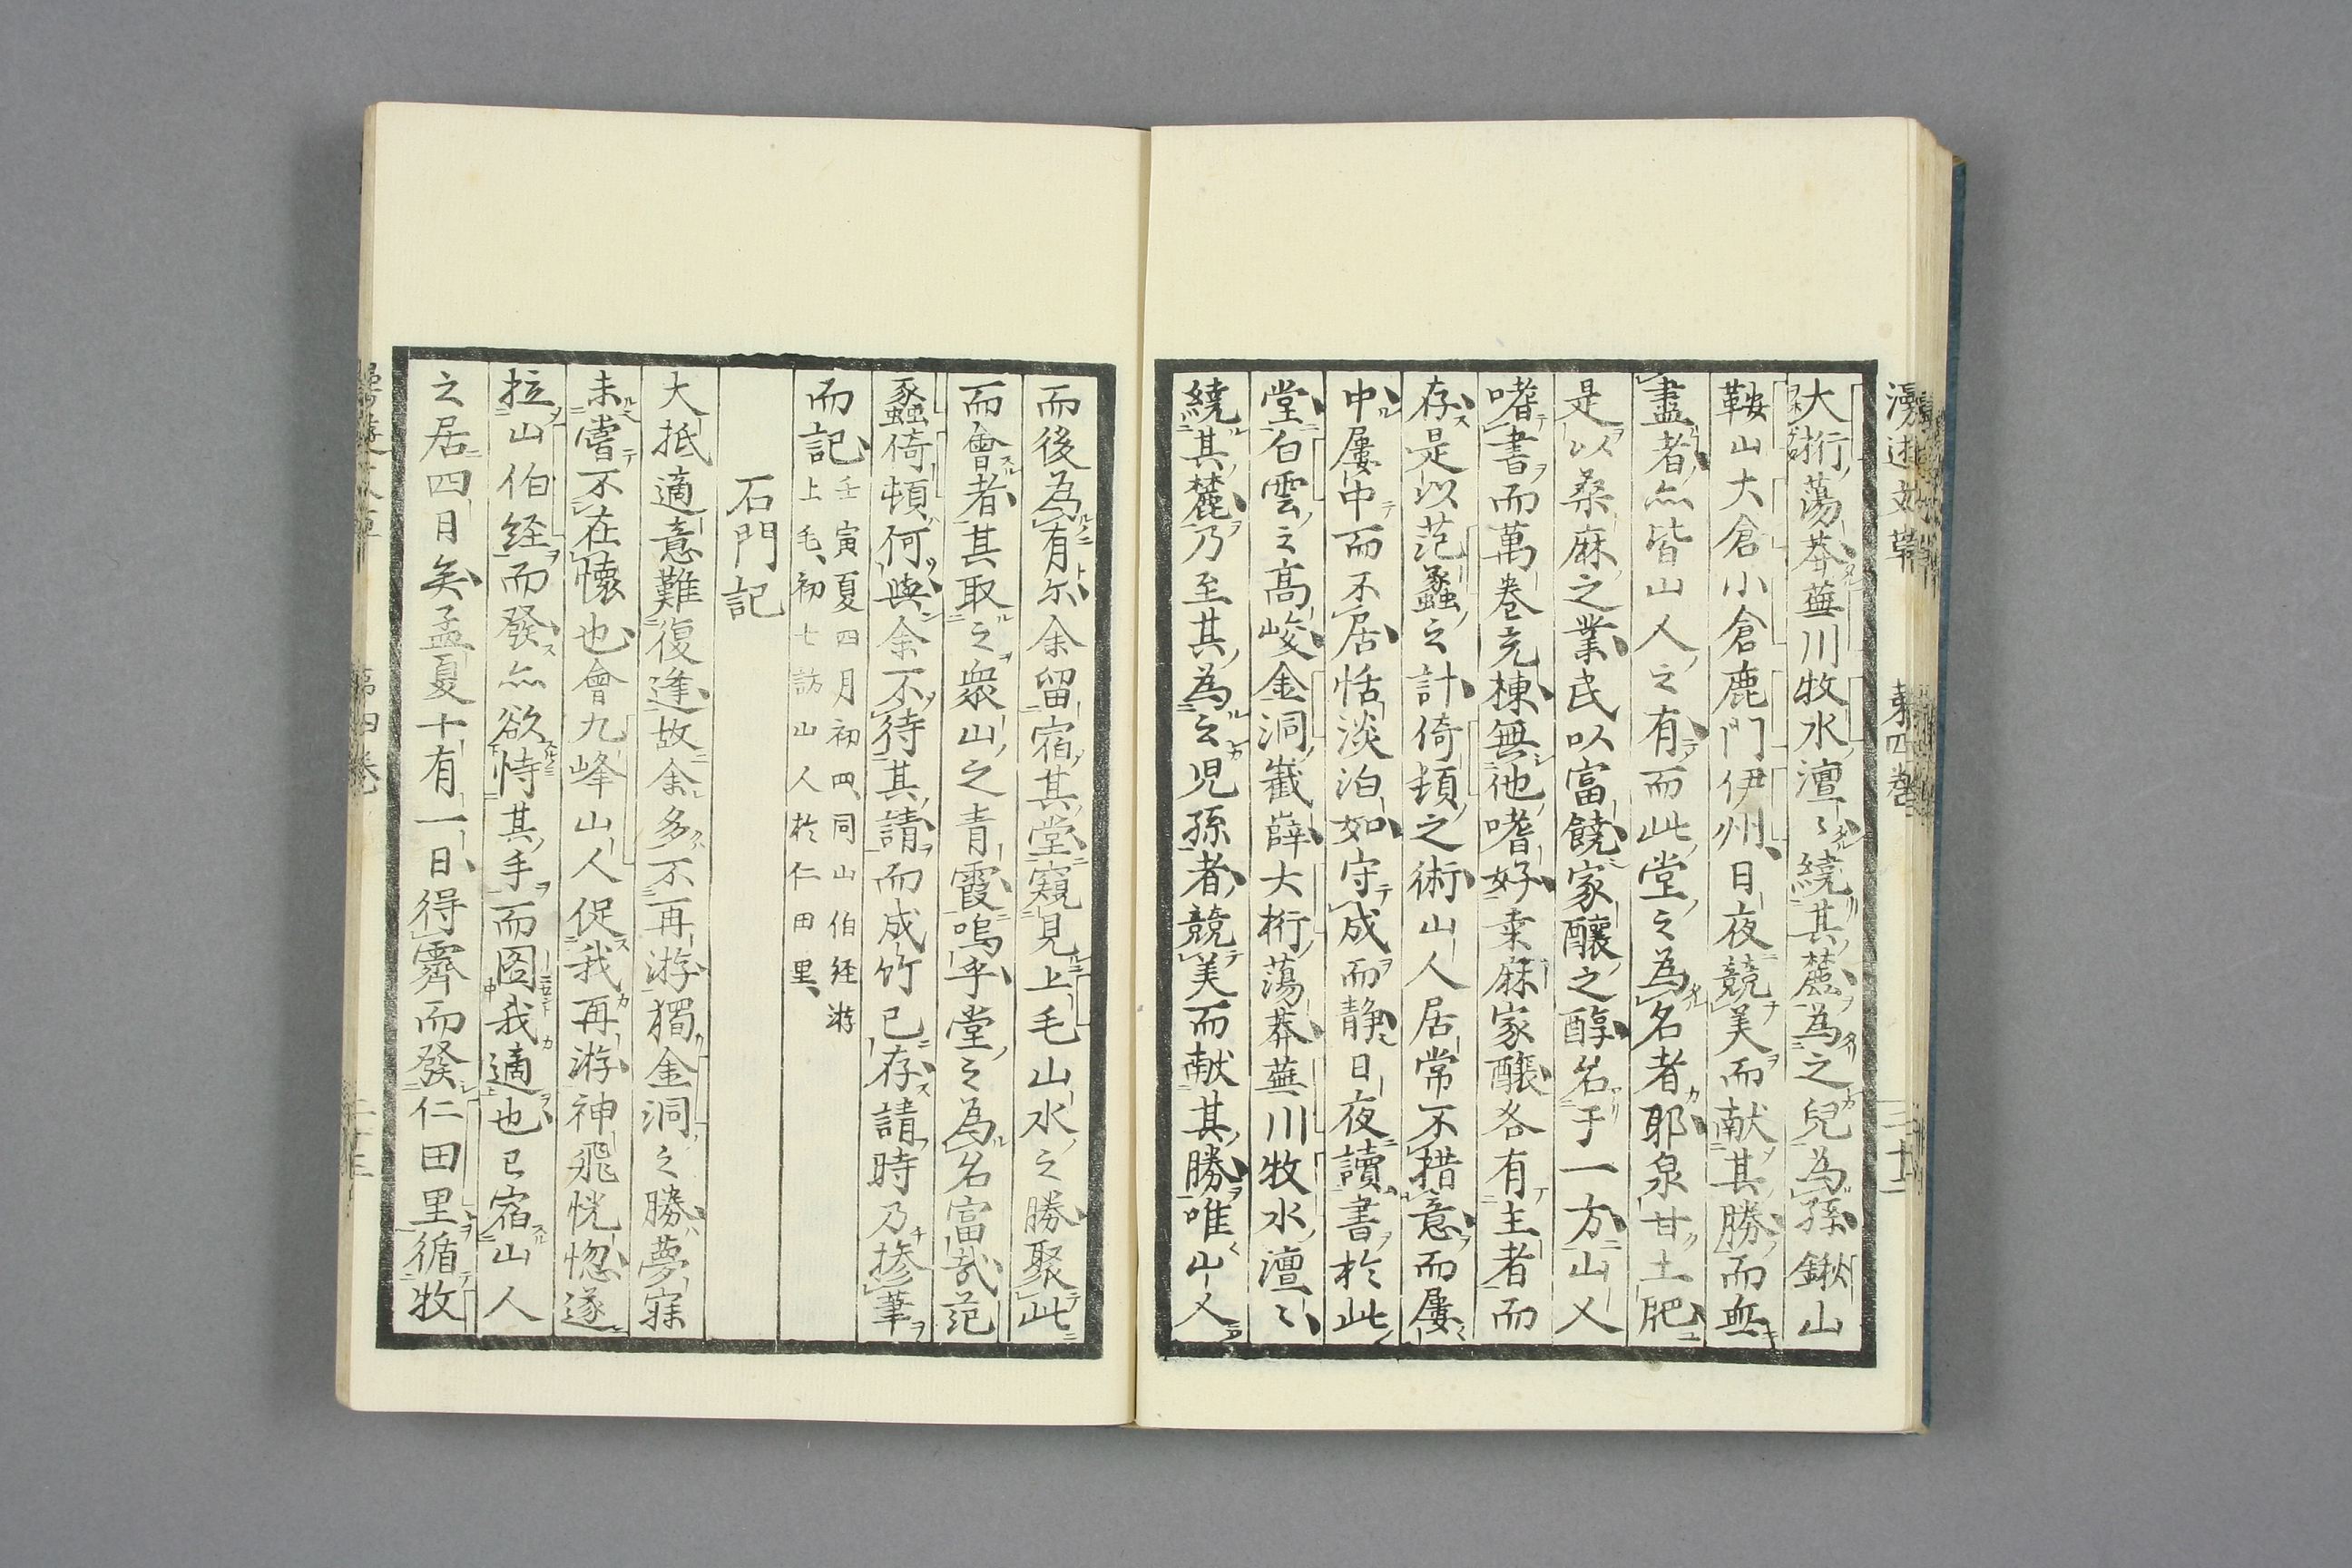 大桁蕩莽蕪川牧水澶〻繞其麓為之兒為孫鍬山
鞍山大倉小倉鹿門伊州日夜競美而献其勝而無
盡者亦皆山人之有而此堂之為名者耶泉甘土肥
是以桑麻之業民以富饒家釀之醇名于一方山人
嗜書而萬卷充棟無他嗜好桒麻家釀各有主者而
存是以范蠡之計倚頓之術山人居常不措意而屢
中屢中而不居恬淡泊如守成而静日夜讀書於此
堂白雲之高峻金洞嶻嶭大桁蕩莽蕪川牧水澶〻
繞其麓乃至其為云児孫者競美而献其勝唯山人
而後為有尓余留宿其堂窺見上毛山水之勝聚此
而會者其取之衆山之青霞嗚乎堂之為名富哉范
蠡倚頓何與余不待其請而成竹已存請時乃摻筆
而記
壬寅夏四月初四同山伯経游
上毛初七訪山人於仁田里
石門記
大抵適意難復逢故余多不再游獨金洞之勝夢寐
未嘗不在懷也會九峰山人促我再游神飛恍惚遂
拉山伯経而發亦欲恃其手而圖我適也已宿山人
之居四月矣孟夏十有一日得霽而發仁田里循牧
第四卷